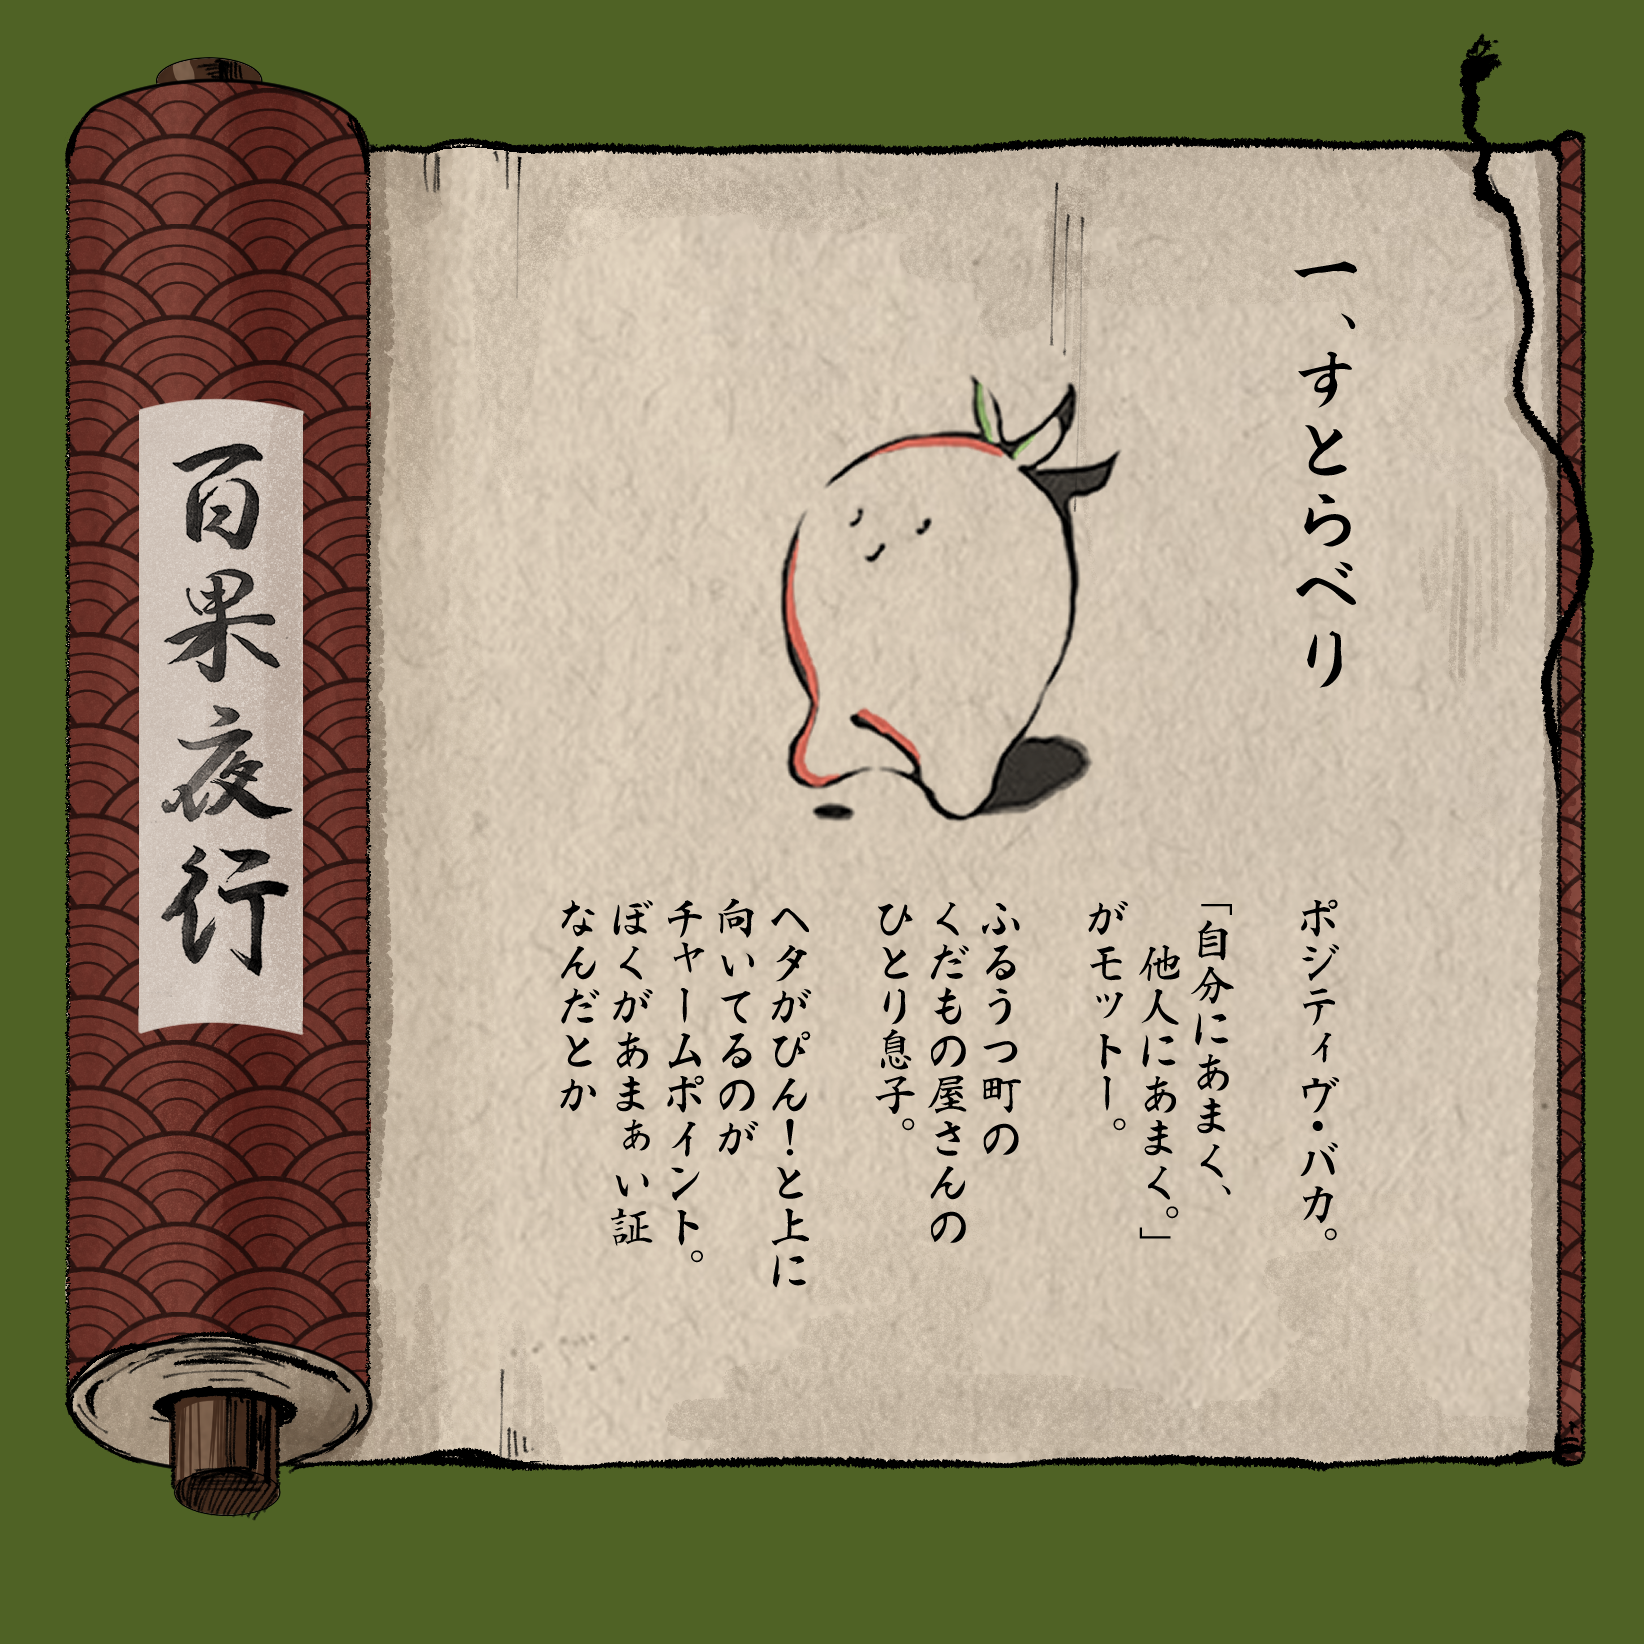 一、すとらべり
ポジティヴ・バカ。
「自分にあまく、
他人にあまく。」
がモットー。
ふるうつ町の
くだもの屋さんの
ひとり息子。
ヘタがぴん！と上に
向いてるのが
チャームポイント。
ぼくがあまぁい証
なんだとか
百果夜行